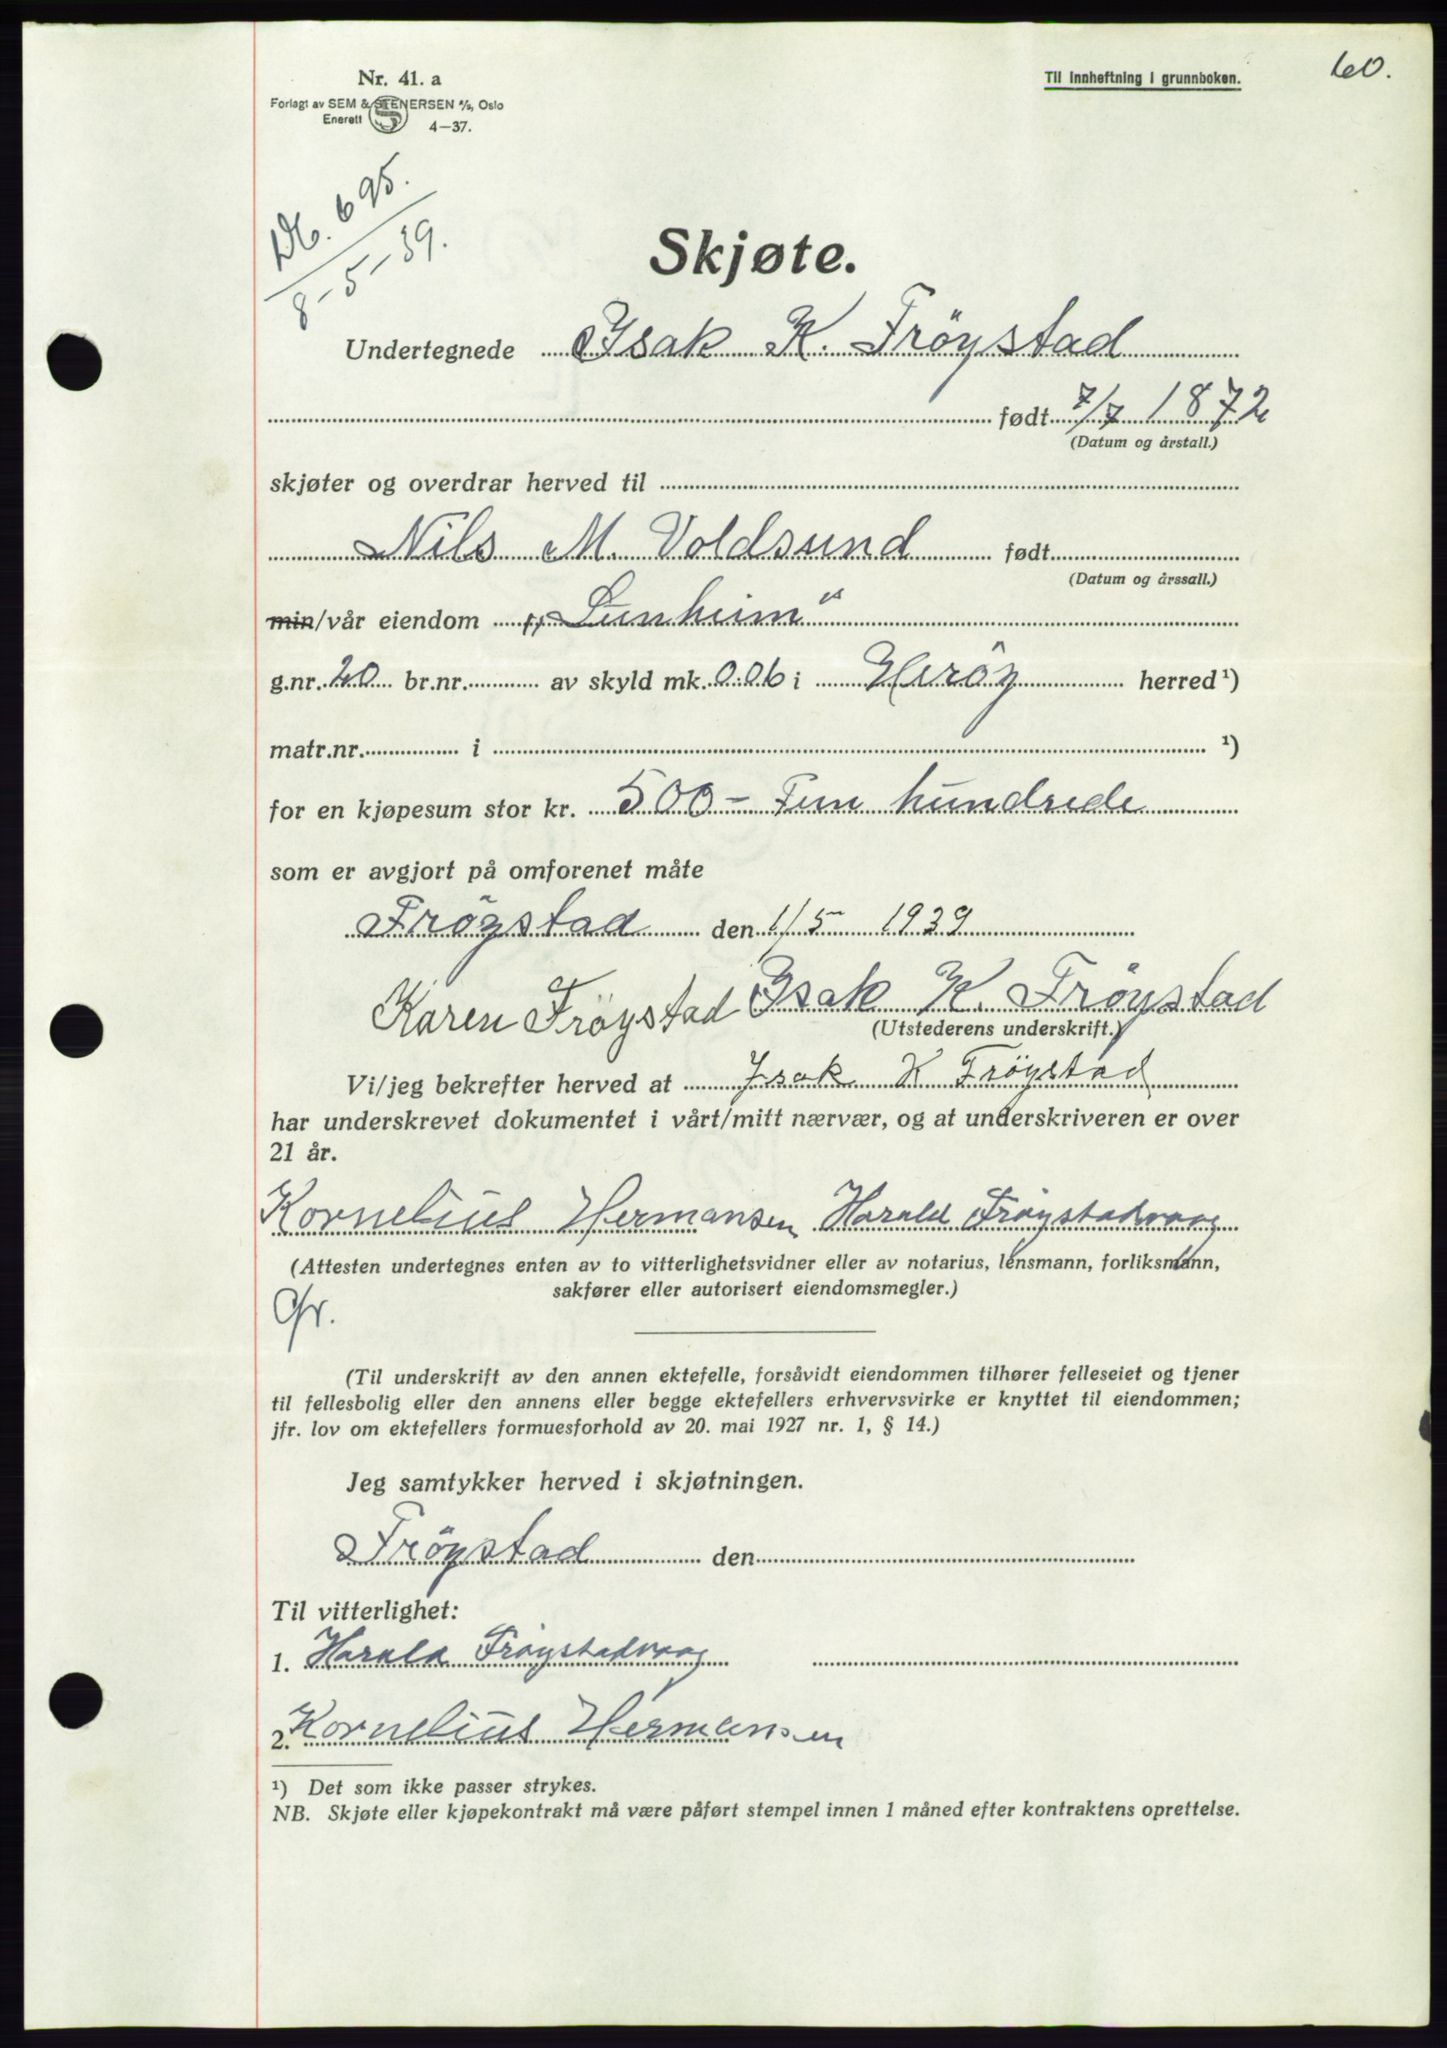 60.
Nr. 41. a
Til innheftning i grunnboken.
Forlagt av SEM & STENERSEN A/S, Oslo
Enerett
4—37.
Db. 695.
8-5-39.
Skjøte.
Undertegnede Isak K. Fröystad
født 7/7 1872
(Datum og årstall.)
skjøter og overdrar herved til
Nils M. Voldsund født
(Datum og årssall.)
min/vår eiendom „Sunheim"
g.nr. 20 br.nr. av skyld mk. 0.06 i Heröy herred ¹)
matr.nr. i ¹)
for en kjøpesum stor kr. 500 – Fem hundrede
som er avgjort på omforenet måte
Fröystad den 1/5 1939
Karen Fröystad Isak K. Fröystad
(Utstederens underskrift.)
Vi/jeg bekrefter herved at Isak K Fröystad
har underskrevet dokumentet i vårt/mitt nærvær, og at underskriveren er over
21 år.
Kornelius Hermansen Harald Fröystadvaag
(Attesten undertegnes enten av to vitterlighetsvidner eller av notarius, lensmann, forliksmann,
sakfører eller autorisert eiendomsmegler.)
Gr.
(Til underskrift av den annen ektefelle, forsåvidt eiendommen tilhører felleseiet og tjener
til fellesbolig eller den annens eller begge ektefellers erhvervsvirke er knyttet til eiendommen;
jfr. lov om ektefellers formuesforhold av 20. mai 1927 nr. 1, § 14.)
Jeg samtykker herved i skjøtningen.
Fröystad den
Til vitterlighet:
1. Harald Fröystadvaag
2. Kornelius Hermansen
¹) Det som ikke passer strykes.
NB. Skjøte eller kjøpekontrakt må være påført stempel innen 1 måned efter kontraktens oprettelse.